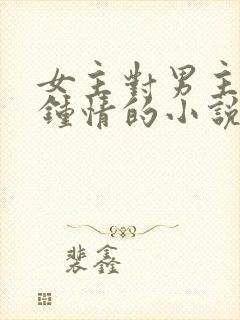 女主對男主
鍾情的小說
裴鑫